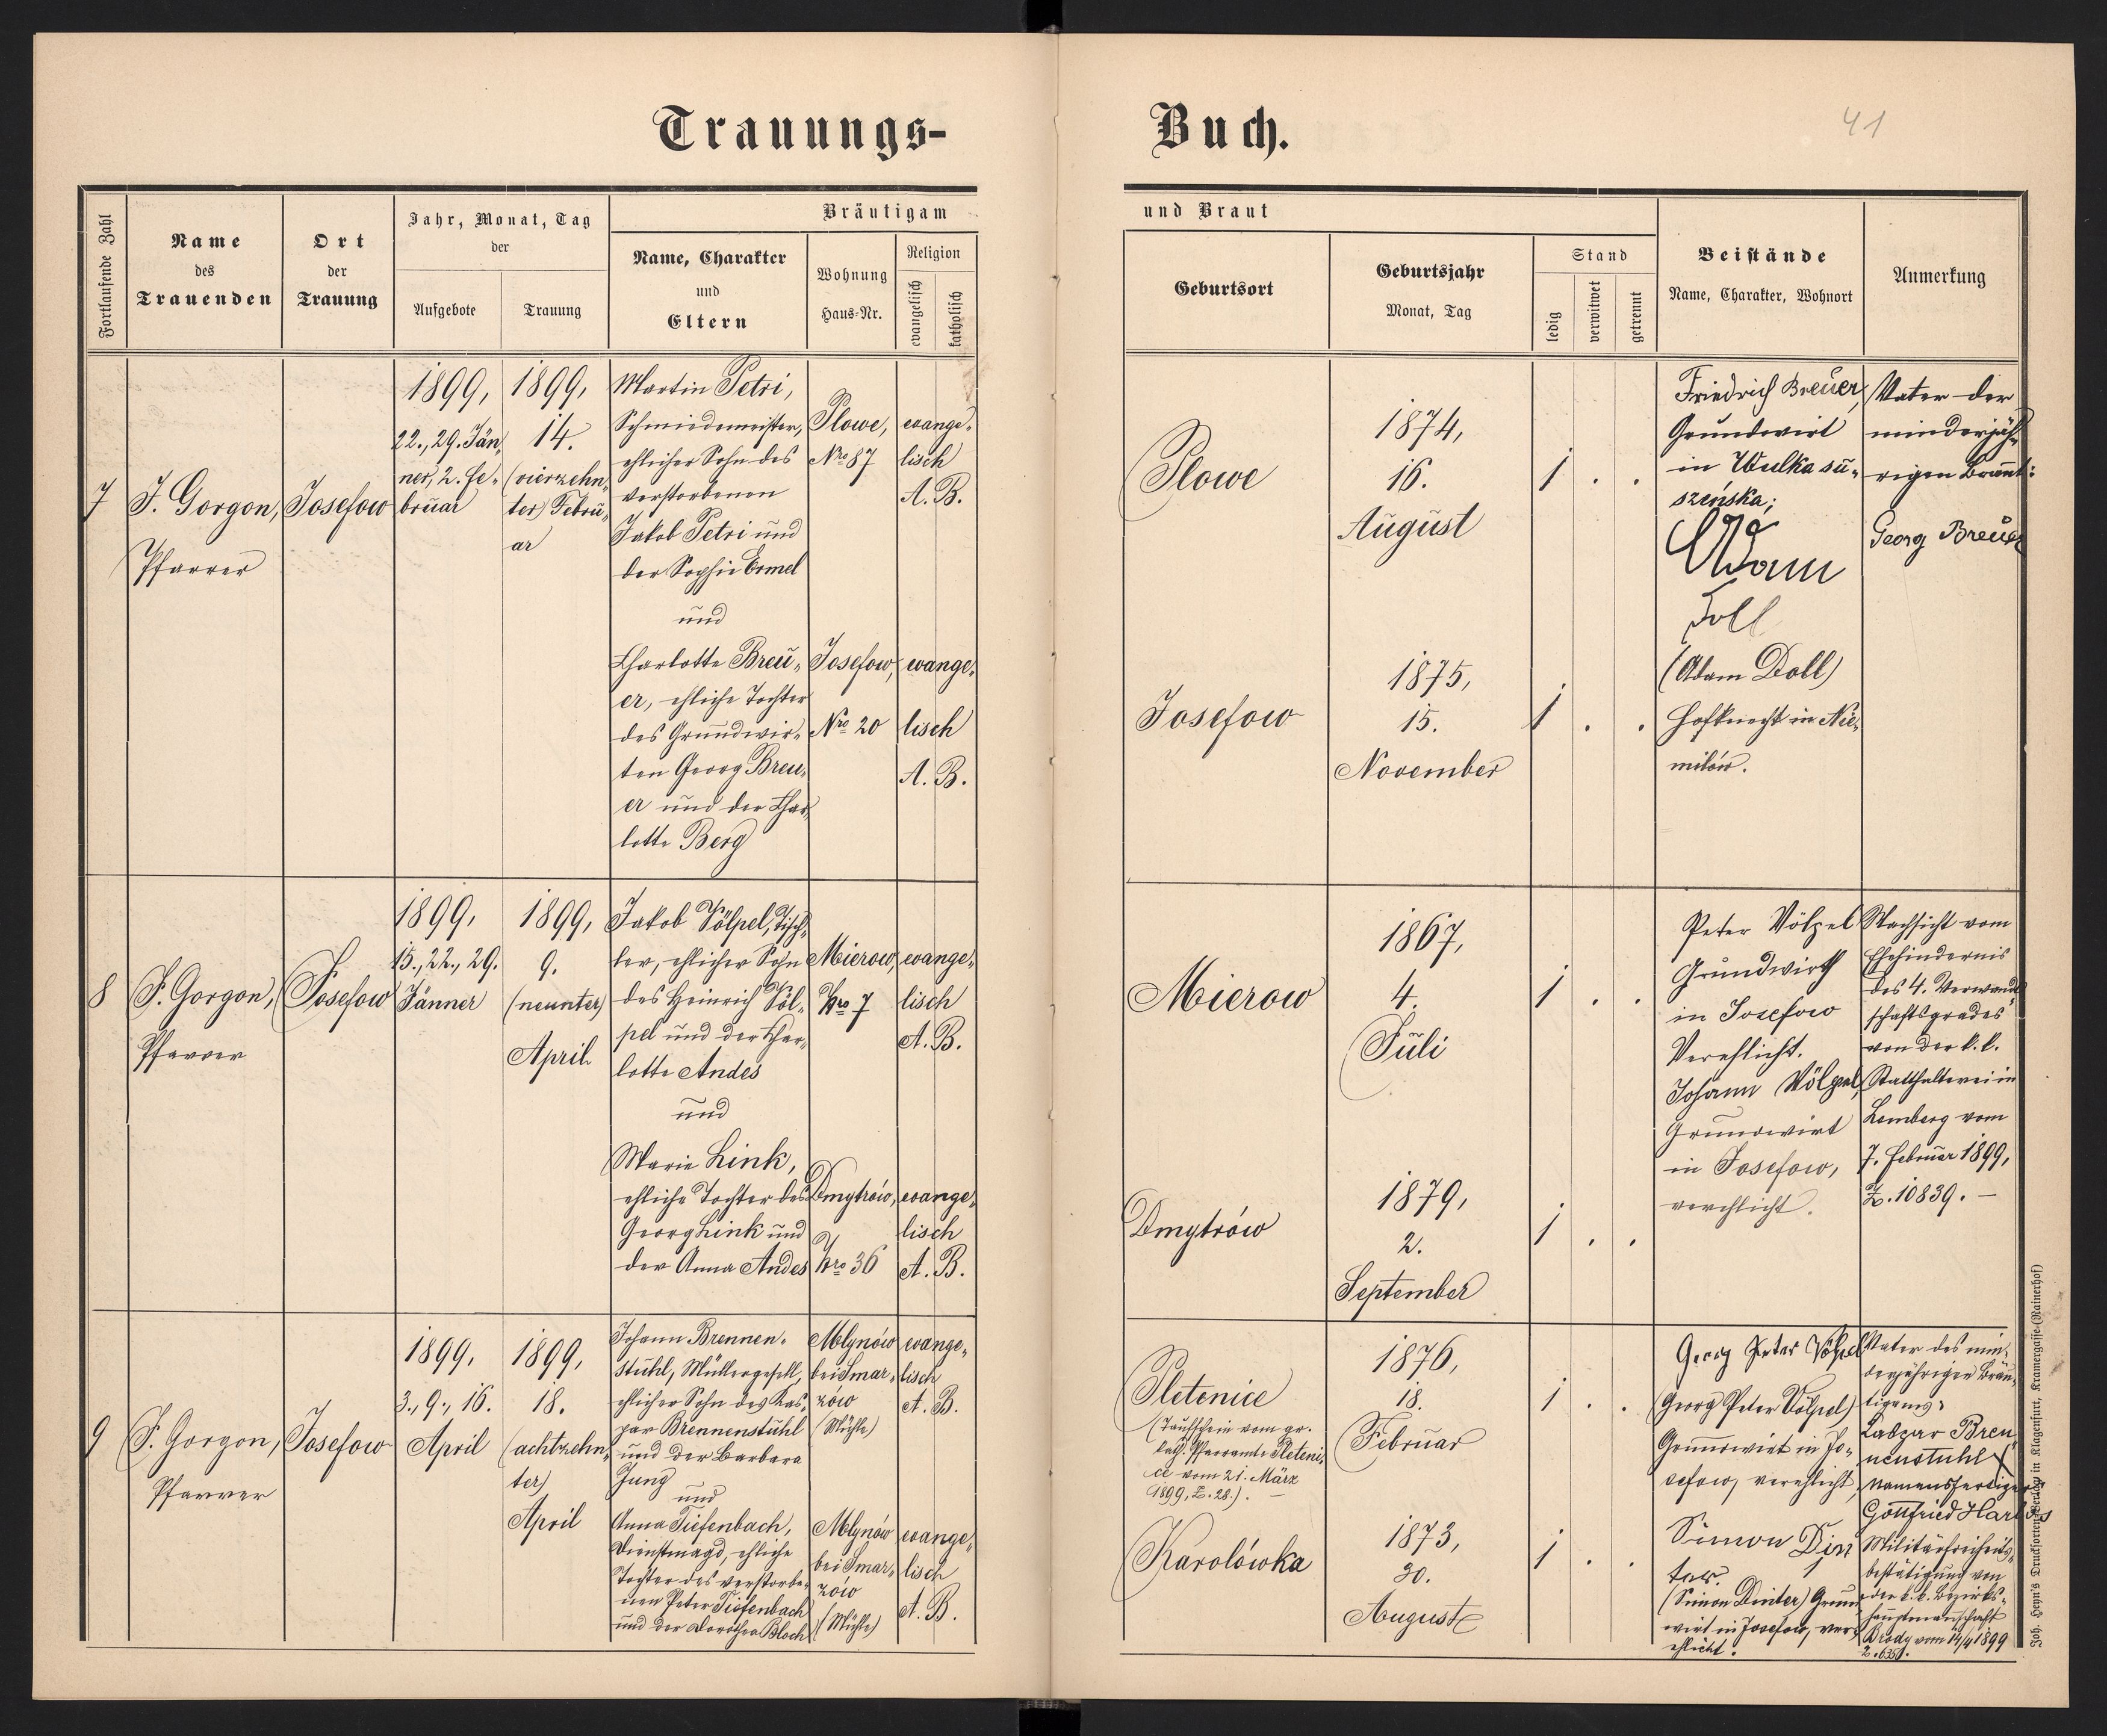 Trauungs-
Buch.
41
Fortlaufende Zahl
Name
des
Trauenden
Ort
der
Trauung
Jahr, Monat, Tag
der
Aufgebote
Trauung
Bräutigam
Name, Charakter
und
Eltern
Wohnung
Haus-Nr.
Religion
evangelisch
katholisch
und Braut
Geburtsort
Geburtsjahr
Monat, Tag
Stand
ledig
verwitwet
getrennt
Beistände
Name, Charakter, Wohnort
Anmerkung
7
J. Gorgon,
Pfarrer
Josefow
1899,
22., 29. Jän,
ner, 2. Fe-
bruar
1899,
14.
(vierzehn,
ter) Febru,
ar
Martin Petri,
Schmiedemeister,
ehelicher Sohn des
verstorbenen
Jakob Petri und
der Sophie Ermel
und
Charlotte Breu-
er, ehliche Tochter
des Grundwir-
ten Georg Breu,
er und der Char,
lotte Berg
Plowe,
Nro 87
evange-
lisch
A. B.
Josefow,
Nro 20
evange,
lisch
A. B.
Plowe
1874,
16.
August
1 . .
Josefow
1875,
15.
November
1 . .
Friedrich Breuer,
Grundwirt
in Wulka su-
szeńska;
Adam
Doll
(Adam Doll)
Hofknecht in Nie,
milów.
Vater der
minderjäh-
rigen Braut:
Georg Breuer
8
J. Gorgon,
Pfarrer
Josefow
1899,
15., 22., 29.
Jänner
1899,
9.
(neunter)
April
Jakob Völpel, Tisch,
ler, ehlicher Sohn
des Heinrich Völ-
pel und der Char,
lotte Andes
und
Marie Link,
ehliche Tochter des
Georg Link und
der Anna Andes
Mierow,
Nro 7
evange-
lisch
A. B.
Dmytrów,
Nro 36
evange,
lisch
A. B.
Mierow
1867,
4.
Juli
1 . .
Dmytrów
1879,
2.
September
1 . .
Peter Völpel
Grundwirth
in Josefow
Verehlicht.
Johann Völpel,
Grundwirt
in Josefow,
verehlicht.
Nachsicht vom
Ehehindernis
des 4. Verwandt
schaftsgrades
von der k. k.
Statthalterei in
Lemberg vom
7. Februar 1899,
Z. 10839. —
9
J. Gorgon,
Pfarrer
Josefow
1899,
3., 9., 16.
April
1899,
18.
(achtzehn,
ter)
April
Johann Brennen-
stuhl, Müllergesell,
ehlicher Sohn des Kas,
par Brennenstuhl
und der Barbara
Jung
und
Anna Tiefenbach,
Dienstmagd, ehliche
Tochter des verstorbe-
nen Peter Tiefenbach
und der Dorothea Bloch
Mlynów
bei Smar-
zów
(Mühle)
evange-
lisch
A. B.
Mlynów
bei Smar-
zów
(Mühle)
evange,
lisch
A. B.
Pletenice
(Taufschein vom gr.
kath. Pfarramte Pleteni,
ce vom 21. März
1899, Z. 28.). —
1876,
18.
Februar
1 . .
Karolówka
1873,
30.
August
1 . .
Georg Peter Völpel
(Georg Peter Völpel)
Grundwirt in Jo-
sefow, verehlicht,
Simon Din
ter.
(Simon Dinter) Grund
wirt in Josefow, ver-
ehlicht.
Vater des min-
derjährigen Bräu,
tigams:
Bren
nenstuhl X
Namensfertiger
Gottfried Harlos
Militärfreiheits,
bestätigung von
der k. k. Bezirks-
hauptmannschaft
Brody vom 14/4 1899
Joh. Heyn's Drucksorten-Verlag in Klagenfurt, Kramergasse (Rainerhof)